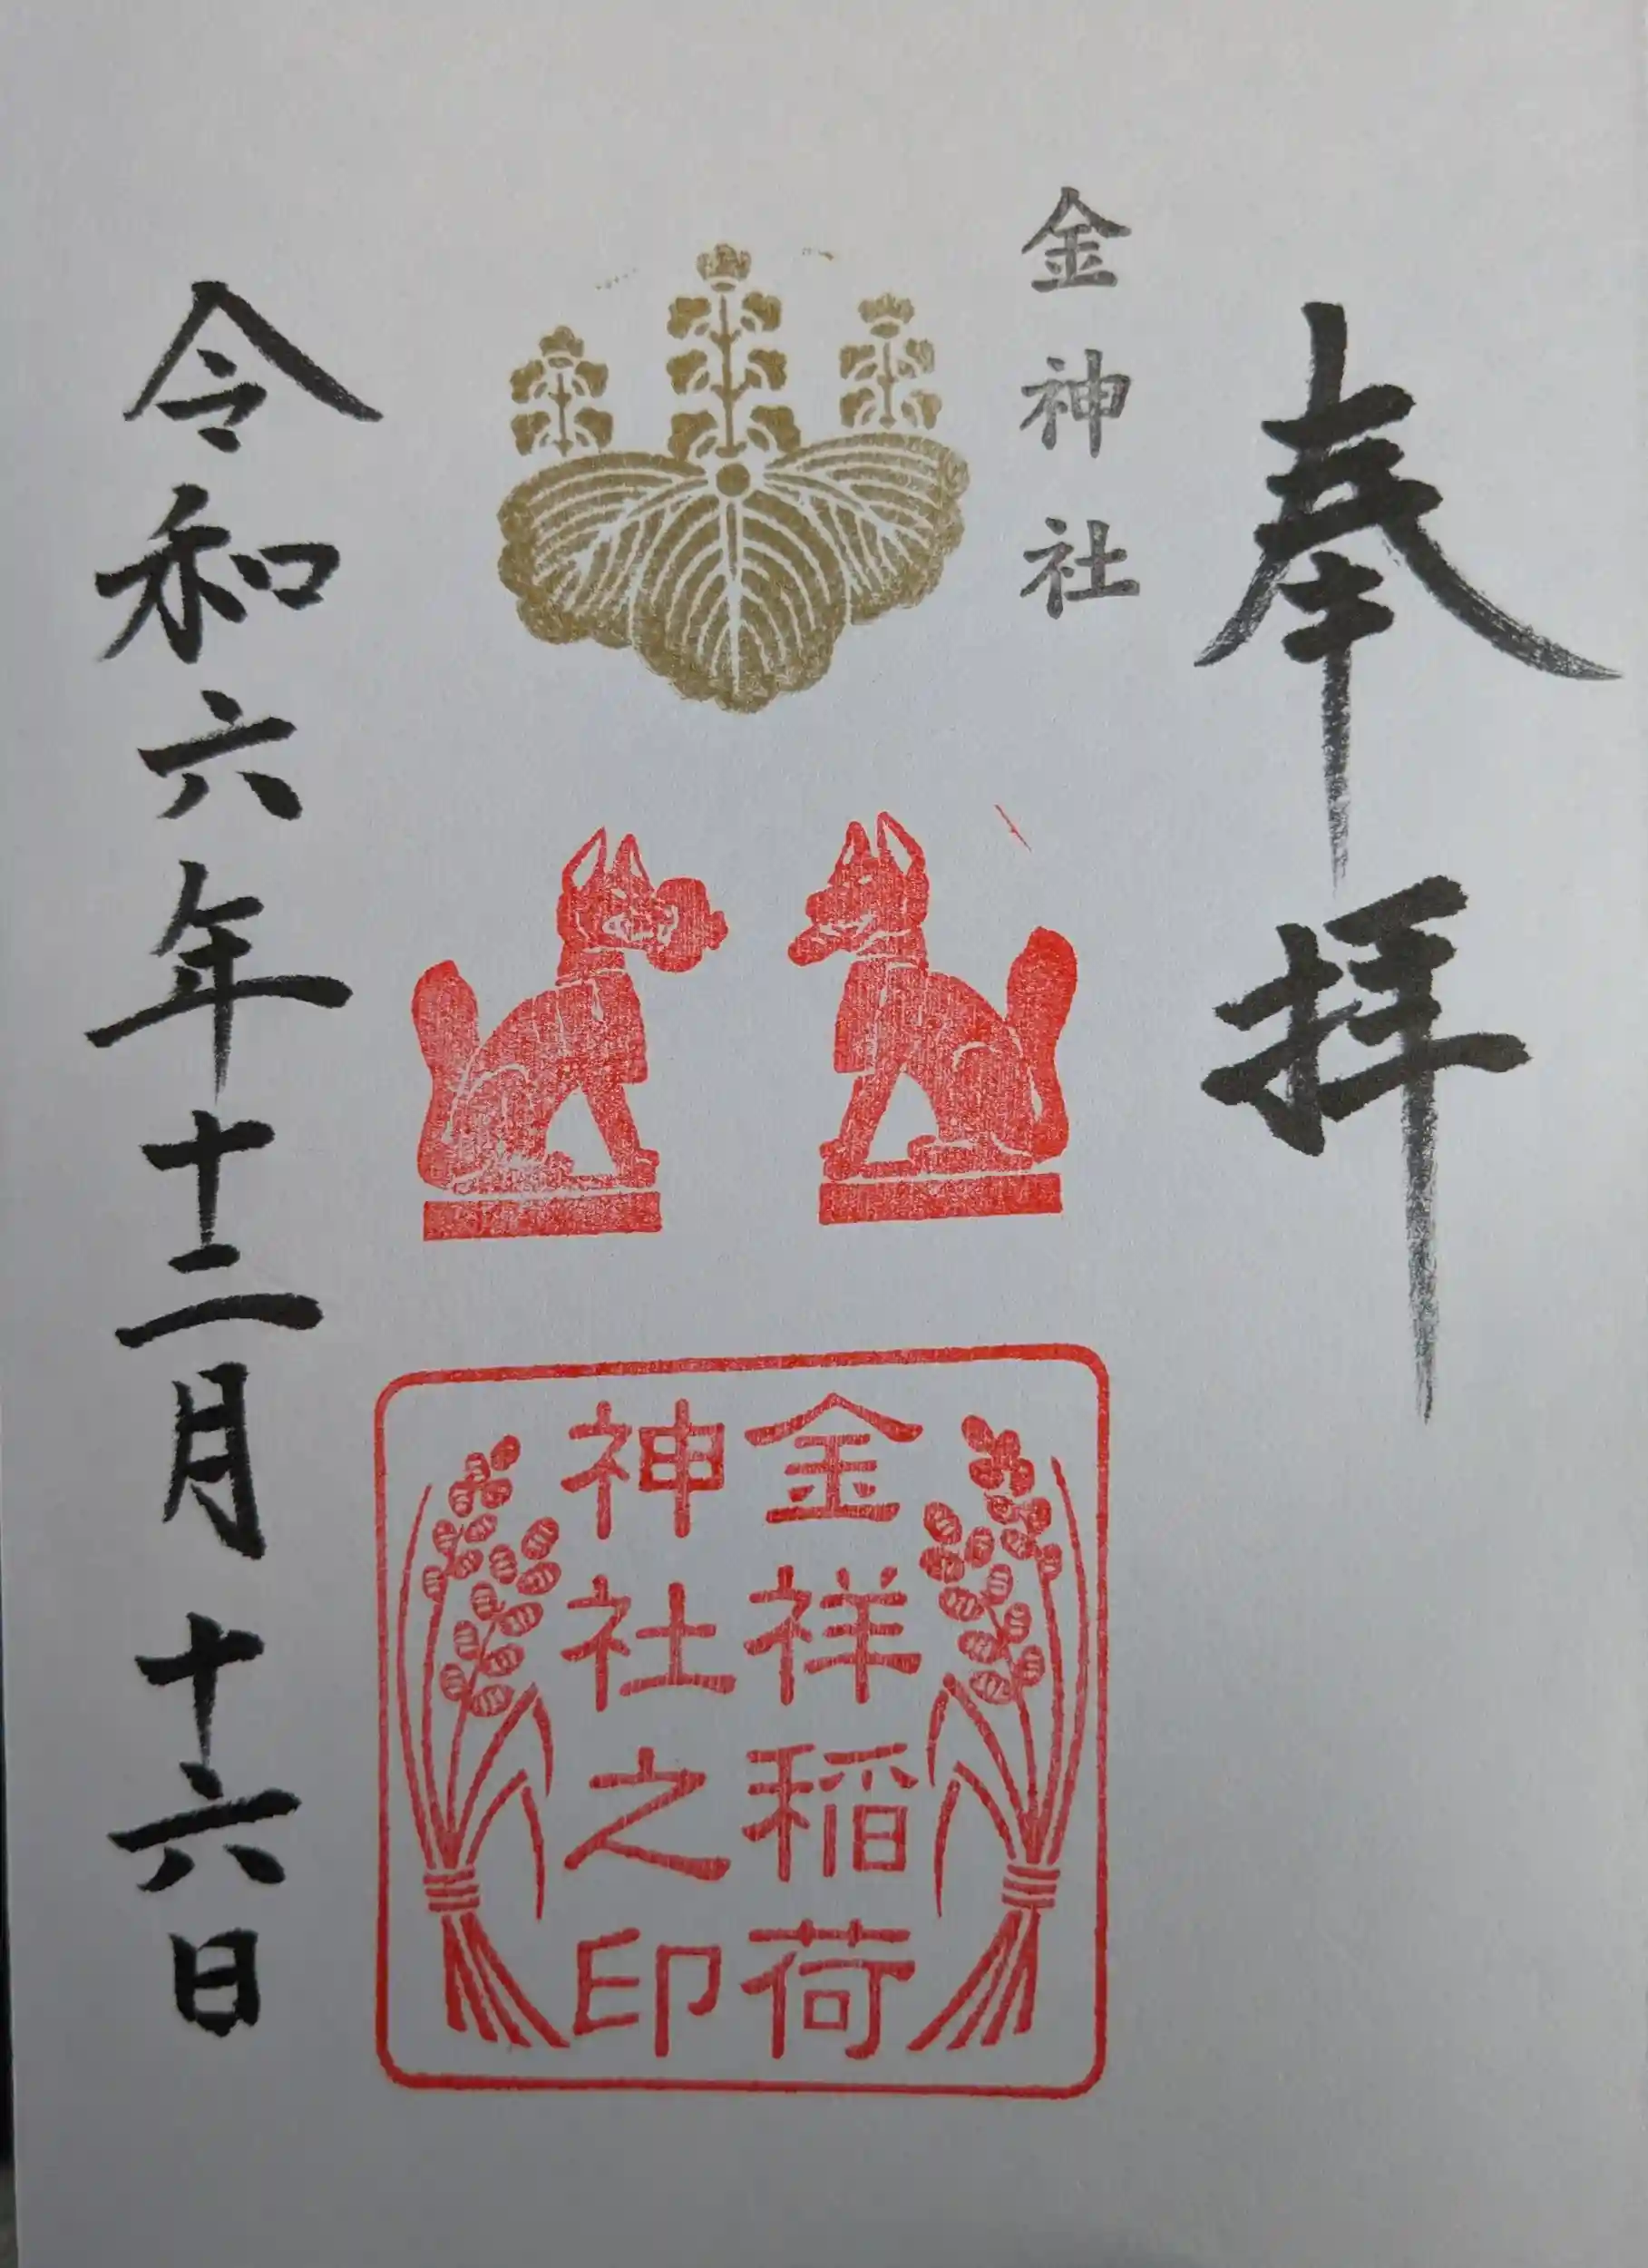 奉拝
金神社
金祥稲荷
神社之印
令和六年十二月十六日